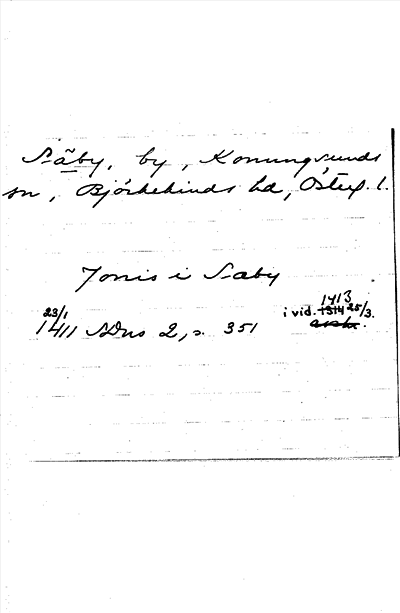 Säby, by, Konungsunds
sn, Björkekinds hd, Österg. l.
Jonis i Saby
23/1 1411 SDns 2, s. 351
i vid. 1413 25/3.